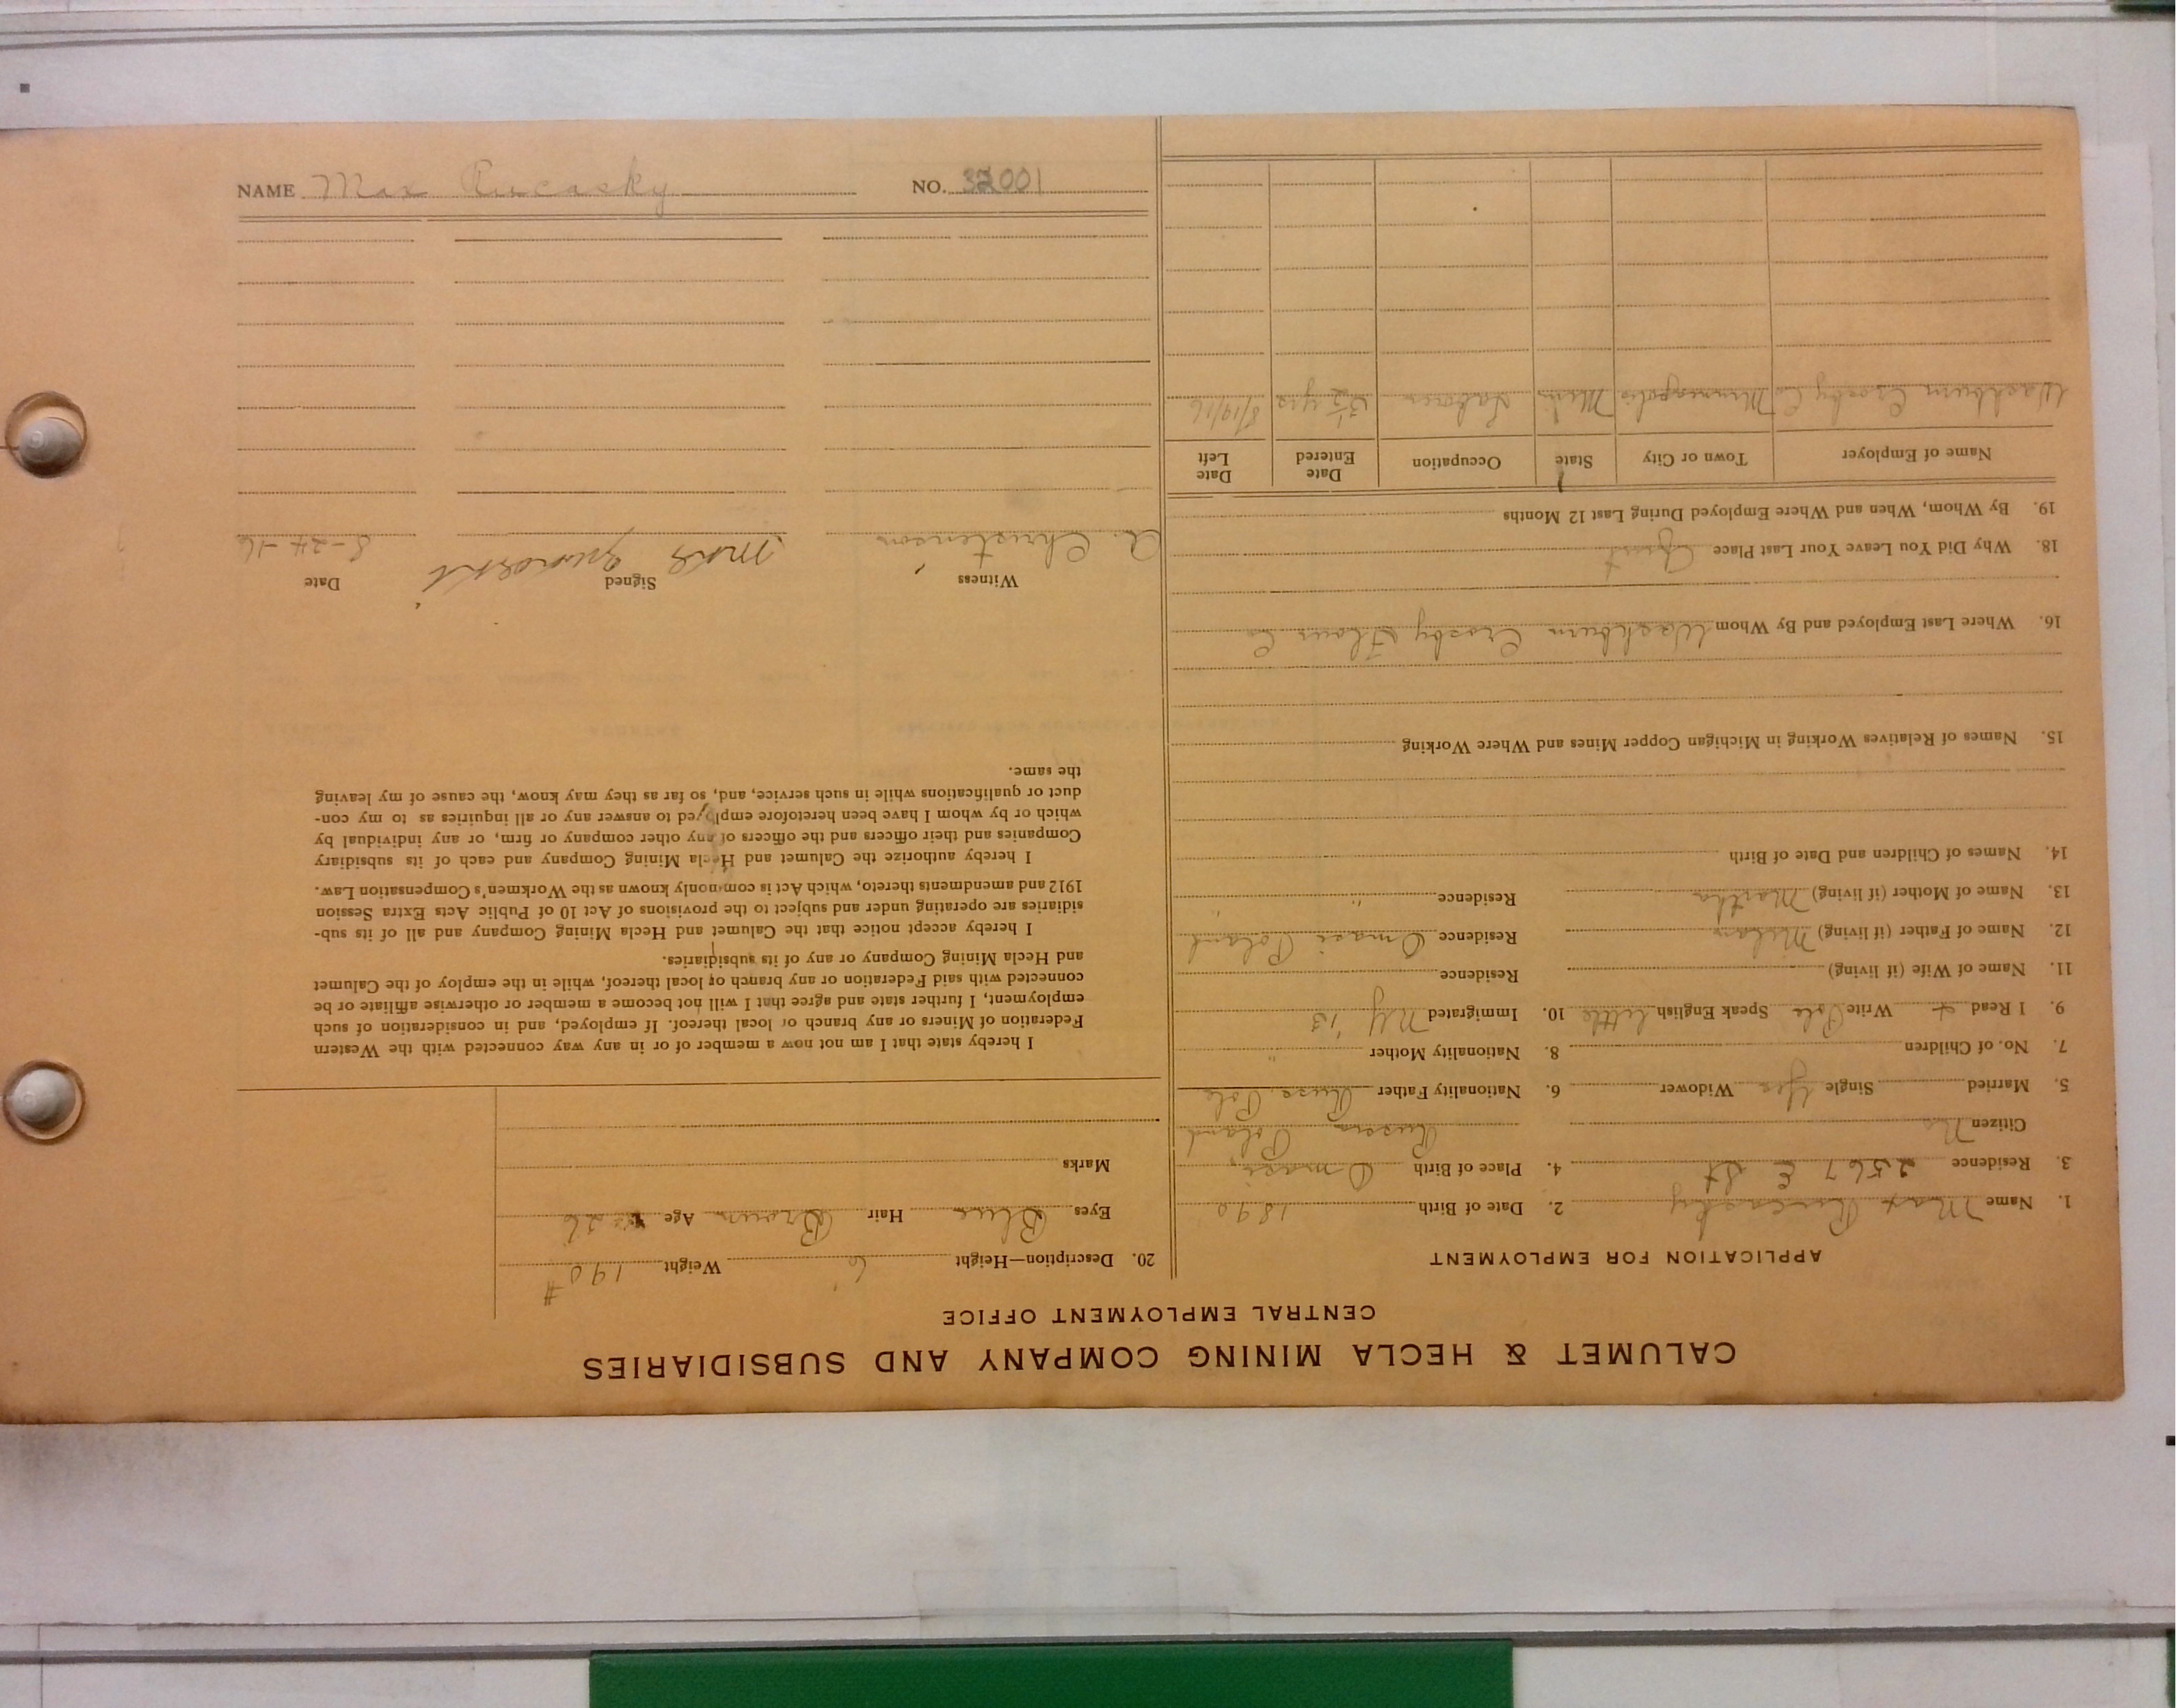 CALUMET & HECLA MINING COMPANY AND SUBSIDIARIES
CENTRAL EMPLOYMENT OFFICE
APPLICATION FOR EMPLOYMENT
1. Name Max Rucasky 2. Date of Birth 1890
3. Residence 2567 E St 4. Place of Birth Omasi,
Citizen No Russia Poland
5. Married Single Yes Widower 6. Nationality Father Russ. Pole
7. No. of Children 8. Nationality Mother "
9. I Read & Write Pole Speak English little 10. Immigrated NY '13
11. Name of Wife (if living) Residence
12. Name of Father (if living) Residence Omasi Poland
13. Name of Mother (if living) Martha Residence " "
14. Names of Children and Date of Birth
15. Names of Relatives Working in Michigan Copper Mines and Where Working
16. Where Last Employed and By Whom Washburn Crosby Flour Co
18. Why Did You Leave Your Last Place Quit
19. By Whom, When and Where Employed During Last 12 Months
Name of Employer Town or City State Occupation Date Entered Date Left
Washburn Crosby Co Minneapolis Minn Laborer 3½ yrs 8/19/16
20. Description—Height 6' Weight 190 #
Eyes Blue Hair Brown Age 26
Marks
I hereby state that I am not now a member of or in any way connected with the Western
Federation of Miners or any branch or local thereof. If employed, and in consideration of such
employment, I further state and agree that I will not become a member or otherwise affiliate or be
connected with said Federation or any branch or local thereof, while in the employ of the Calumet
and Hecla Mining Company or any of its subsidiaries.
I hereby accept notice that the Calumet and Hecla Mining Company and all of its sub-
sidiaries are operating under and subject to the provisions of Act 10 of Public Acts Extra Session
1912 and amendments thereto, which Act is commonly known as the Workmen's Compensation Law.
I hereby authorize the Calumet and Hecla Mining Company and each of its subsidiary
Companies and their officers and the officers of any other company or firm, or any individual by
which or by whom I have been heretofore employed to answer any or all inquiries as to my con-
duct or qualifications while in such service, and, so far as they may know, the cause of my leaving
the same.
Witness Signed Date
A. Christenson 8-24-16
NAME Max Rucasky NO. 32001